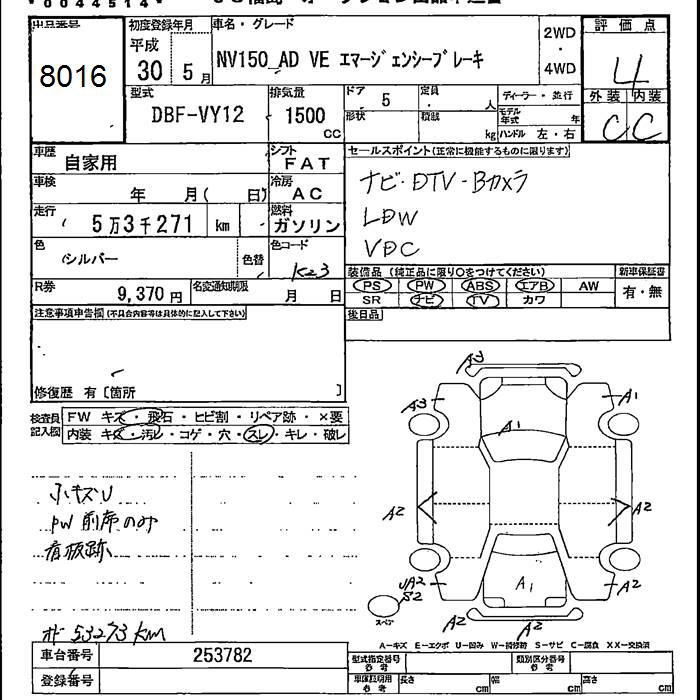 0044514
出品番号
8016
初度登録年月
平成
30 5月
車名・グレード
NV150 AD VE エマージェンシーブレーキ
2WD
・
4WD
評価点
4
外装 内装
C C
型式
DBF-VY12
排気量
1500
CC
ドア 5
定員 人
ディーラー・並行
形状
積載 kg
モデル年式 年
ハンドル 左・右
車歴 自家用
シフト FAT
車検 年 月( 日)
冷房 AC
走行 5万3千271 km
燃料 ガソリン
色 シルバー
色替
色コード K23
R券 9,370円
名変通知期限 月 日
セールスポイント(正常に機能するものに限ります)
ナビ・DTV-Bカメラ
LDW
VDC
装備品(純正品に限り〇をつけてください)
新車保証書
PS PW ABS エアB AW
有・無
SR ナビ TV カワ
後日品
注意事項申告欄(不具合内容等は具体的に記入して下さい)
修復歴 有〔箇所 〕
検査員記入欄
FW キズ・飛石・ヒビ割・リペア跡・×要
内装 キズ・汚レ・コゲ・穴・スレ・キレ・破レ
小キズU
PW前席のみ
看板跡
オド 53273km
A3
A3
A1
A1
A2
A2
A1
A2
S2
A2
A2
A2
スペア
A-キズ E-エクボ U-凹み W-補修跡 S-サビ C-腐食 XX-交換済
車台番号 253782
登録番号
型式指定番号 参考
類別区分番号 参考
車庫証明用 参考
長さ cm
幅 cm
高さ cm